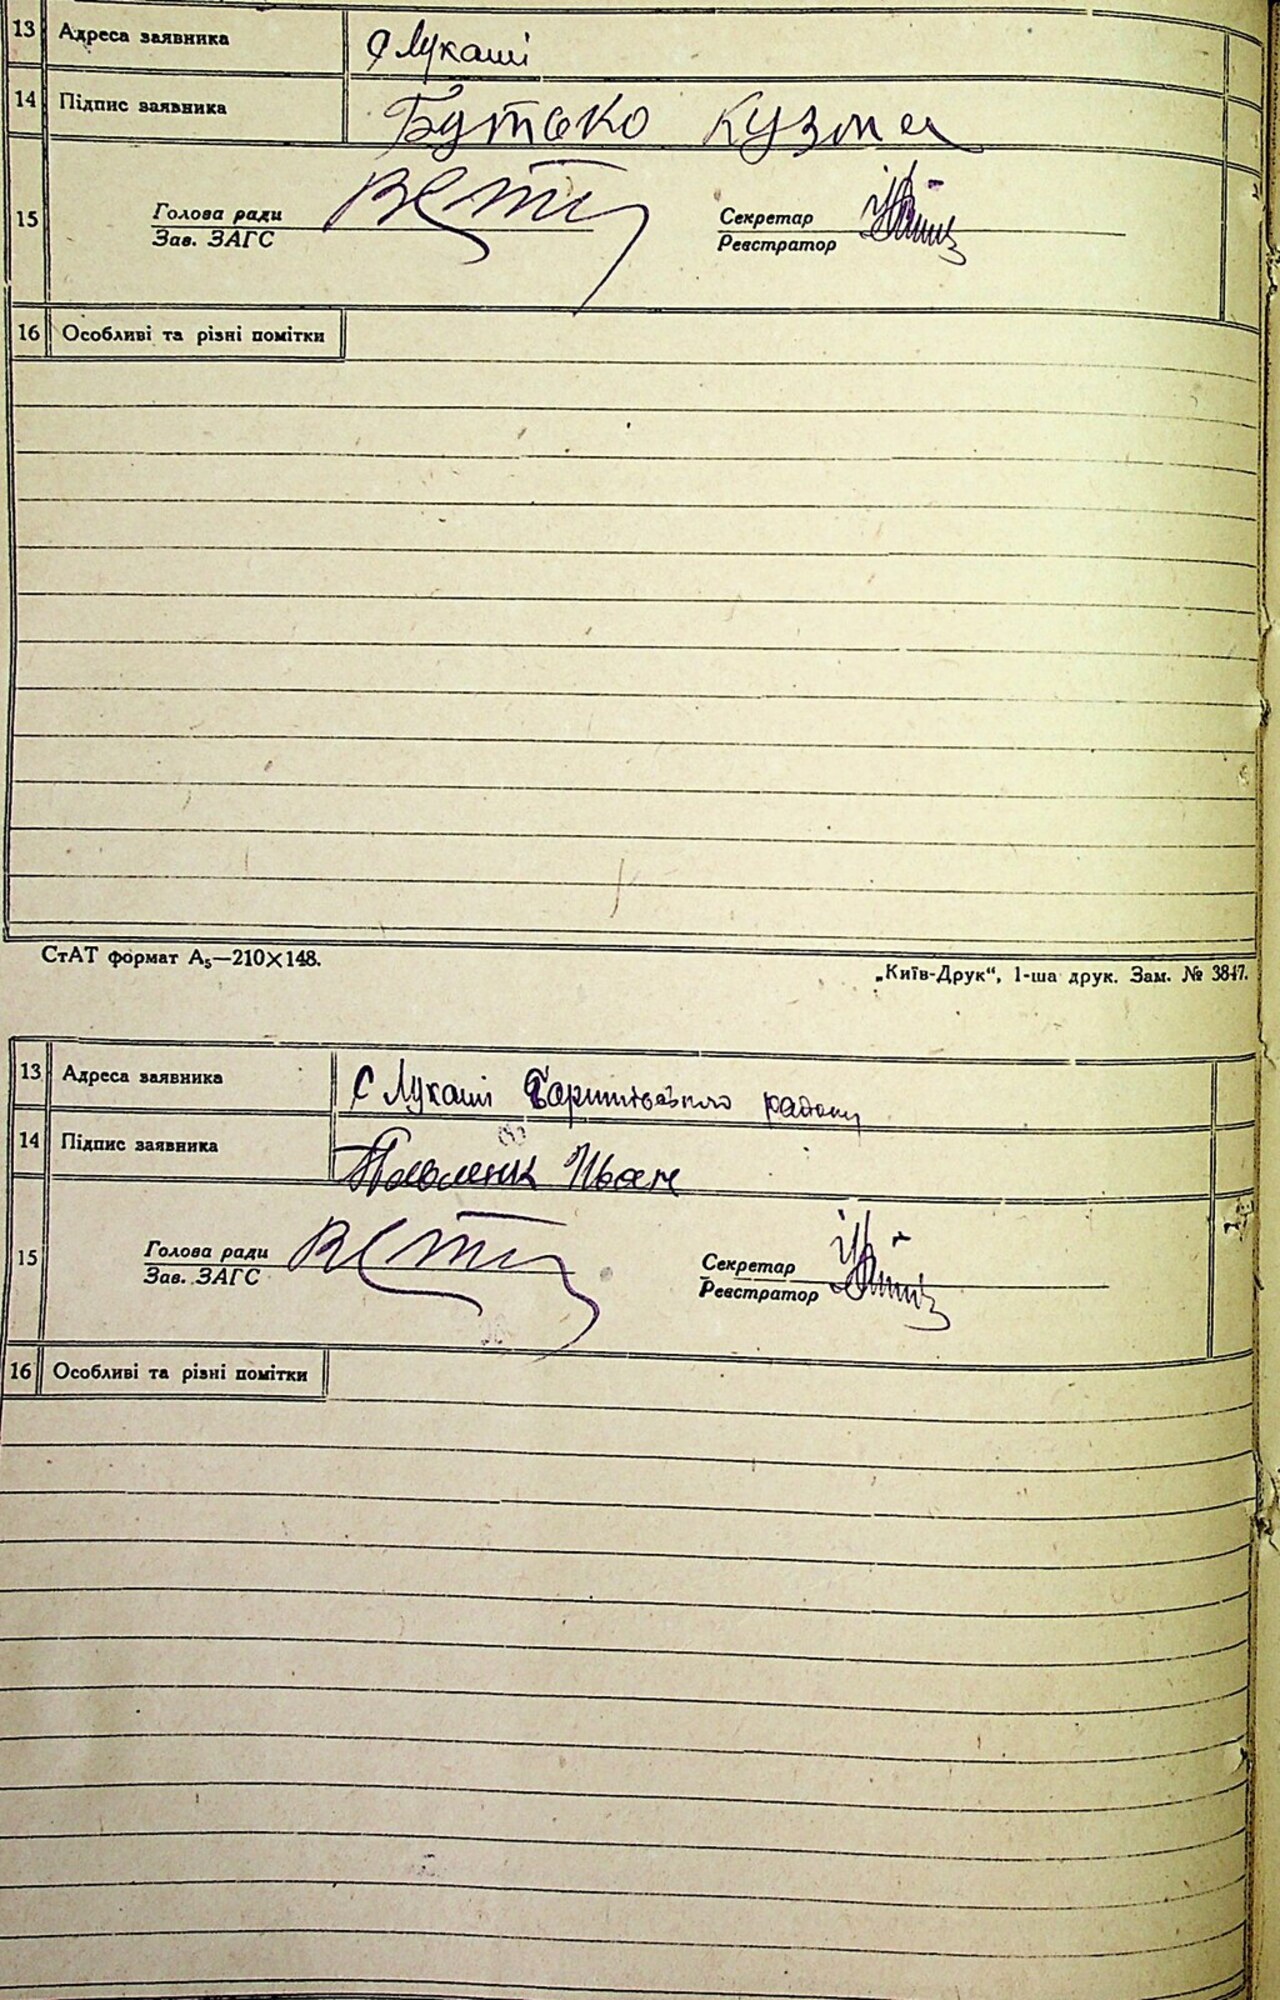 13 Адреса заявника с Лукаші
14 Підпис заявника Бутско Кузма
15 Голова ради Секретар
Зав. ЗАГС Реєстратор
16 Особливі та різні помітки
СтАТ формат А₅—210×148.
„Київ-Друк“, 1-ша друк. Зам. № 3847.
13 Адреса заявника с Лукаші району
14 Підпис заявника Іван
15 Голова ради Секретар
Зав. ЗАГС Реєстратор
16 Особливі та різні помітки